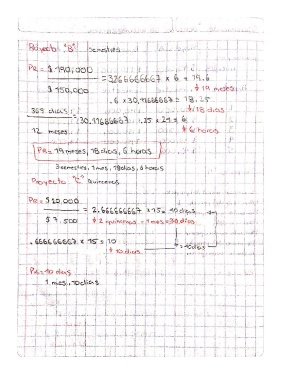 Proyecto "B" Semestres
PR = $ 490,000 = 3.266666667 x 6 = 19.6
$ 150,000 19 meses
.6 x 30.41666667 = 18.25
365 días = 30.41666667 .25 x 24 = 6 18 días
12 meses 6 horas
PR = 19 meses, 18 días, 6 horas
3 semestres, 1 mes, 18 días, 6 horas
Proyecto "C" Quincenas
PR = $ 20,000 = 2.666666667 x 15 = 40 días
$ 7,500 2 quincenas = 1 mes = 30 días
.666666667 x 15 = 10 = 10 días
10 días
PR = 40 días
1 mes, 10 días